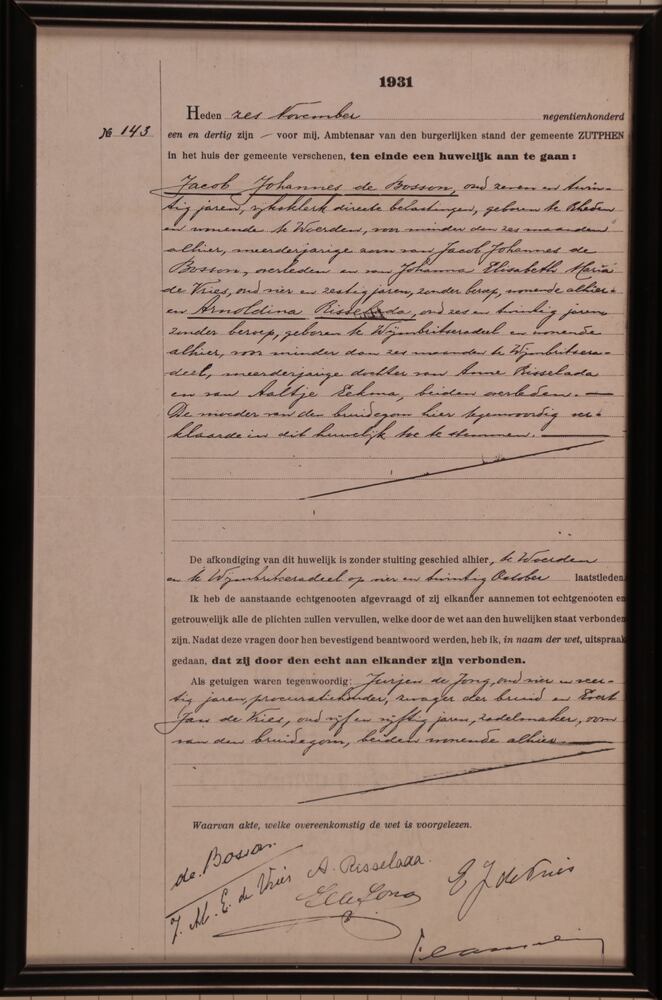 1931
№ 143
Heden zes November negentienhonderd
een en dertig zijn — voor mij, Ambtenaar van den burgerlijken stand der gemeente ZUTPHEN
in het huis der gemeente verschenen, ten einde een huwelijk aan te gaan:
Jacob Johannes de Bosson, oud zeven en twin-
tig jaren, rijksklerk directe belastingen, geboren te Rheden
en wonende te Woerden, voor minder dan zes maanden
alhier, meerderjarige zoon van Jacob Johannes de
Bosson, overleden en van Johanna Elisabeth Maria
de Vries, oud vier en zestig jaren, zonder beroep, wonende alhier =
en Arnoldina Risselada, oud zes en twintig jaren
zonder beroep, geboren te Wymbritseradeel en wonende
alhier, voor minder dan zes maanden te Wymbritsera-
deel, meerderjarige dochter van Anne Risselada
en van Aaltje Eekma, beiden overleden. —
De moeder van den bruidegom hier tegenwoordig ver=
klaarde in dit huwelijk toe te stemmen. —
De afkondiging van dit huwelijk is zonder stuiting geschied alhier, te Woerden
en te Wymbritseradeel op vier en twintig October laatstleden.
Ik heb de aanstaande echtgenooten afgevraagd of zij elkander aannemen tot echtgenooten en
getrouwelijk alle de plichten zullen vervullen, welke door de wet aan den huwelijken staat verbonden
zijn. Nadat deze vragen door hen bevestigend beantwoord werden, heb ik, in naam der wet, uitspraak
gedaan, dat zij door den echt aan elkander zijn verbonden.
Als getuigen waren tegenwoordig: Jurjen de Jong, oud vier en veer-
tig jaren, procuratiehouder, zwager der bruid en Evert
Jan de Vries, oud vijf en vijftig jaren, zadelmaker, oom
van den bruidegom, beiden wonende alhier —
Waarvan akte, welke overeenkomstig de wet is voorgelezen.
de Bosson.
A. Risselada.
E J de Vries
E. de Vries
de Jong